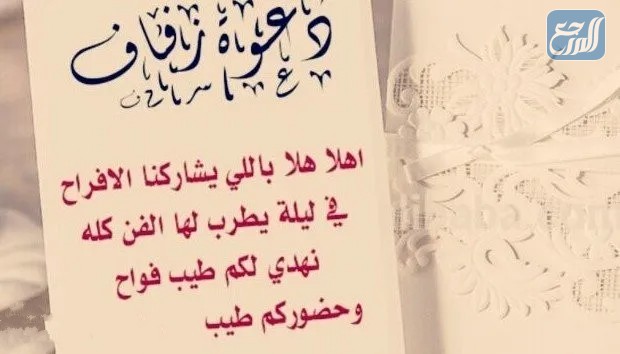 المرجع
دعوة زفاف
اهلا هلا باللي يشاركنا الافراح
في ليلة يطرب لها الفن كله
نهدي لكم طيب فواح
وحضوركم طيب